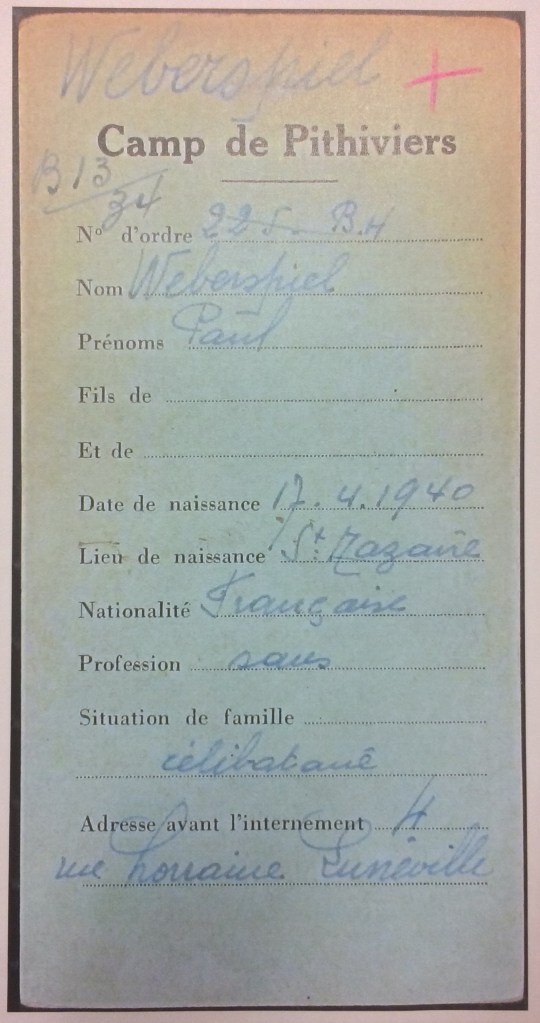 Weberspiel +
Camp de Pithiviers
B 13/34
N° d'ordre 225 - B.4
Nom Weberspiel
Prénoms Paul
Fils de
Et de
Date de naissance 17.4.1940
Lieu de naissance St. Nazaire
Nationalité Française
Profession sans
Situation de famille
célibataire
Adresse avant l'internement 4
rue Lorraine Lunéville